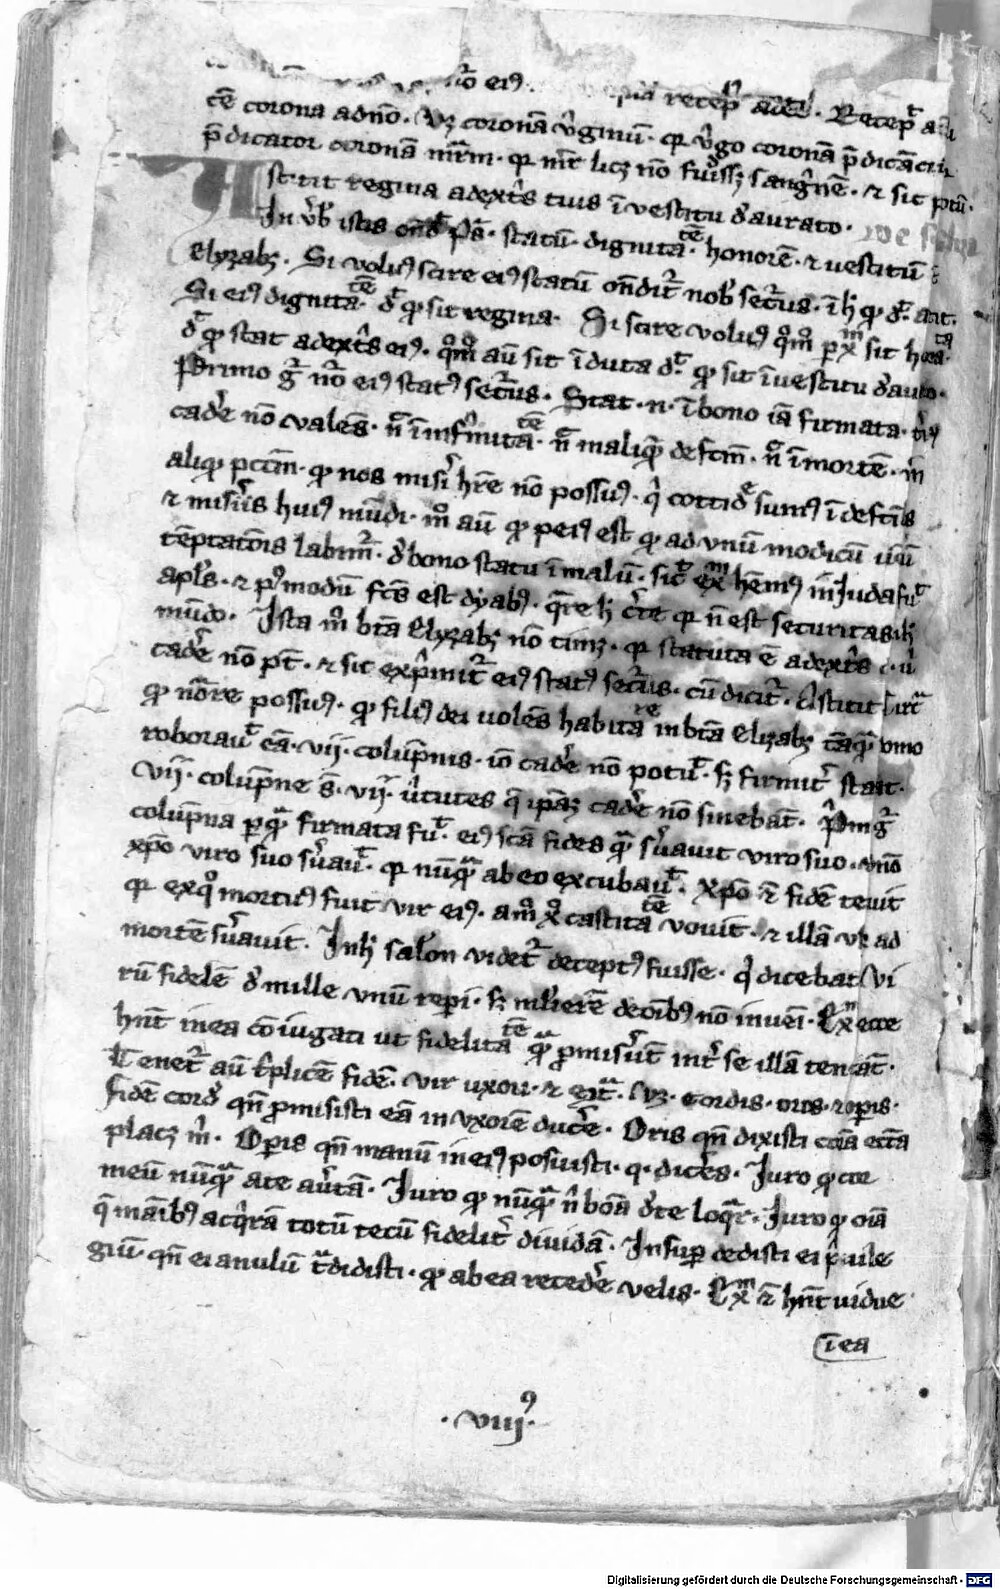 nō eiꝰ quia recep̄
tē corona adn̄o. Vꝫ coronā v̓ginū. qꝛ v̓go coronā p̄dicācīu
p̄dicator coronā mr̄m. qꝛ mr̄ licꝫ nō fuiss̄ꝫ sangⁱnē. ⁊ sic ptꝫ.
Astitit regina adext̓s tuis ī vestitu d̓aurato.
In v̓b̓ istis on̄d̓ ps̄. statū. dignitatē. honorē. ⁊ uestitū
Elyzabꝫ. Si volūꝰ scire eiꝰ statū on̄dit̓ nob̓ sec̄t̓us. ī hͦ ꝙ dr̄. astit.
Si eiꝰ dignitatē. dr̄ ꝙ sit regina. Si scire volūꝰ qͦmͦ xp̄m sit
dr̄ ꝙ stat adext̓s eiꝰ. qͦmͦ aū sit īduta dr̄. ꝙ sit ī vestitu d̓aurato.
Primo gͦ nō eiꝰ statꝰ sec̄t̓us. Stat. n. ī bono iā firmata.
cad̓e nō valēs. nͨ ī infⁱmitatē. nͨ maliq̄ꝫ defcm̄. nͨ ī mortē. nͨ
aliqꝫ pctm̄. ꝙ nos misi̓ hr̄e nō possūꝰ. qⁱ cottidͤ sumꝰ ī defctīs
⁊ misi̓is huiꝰ mūdi. mͦ aū ꝙ peiꝰ est ꝙ ad vnū modicū uētū
tēptatōīs labim̓. d̓ bono statu ī malū. sic exm̄ hēmꝰ in Juda fuit
apl̓s. ⁊ pꝰmodū fcs̄ est dyabꝰ. q̄re hͦ c̓te qꝛ n̄ est securitas ihͦ
mūdo. Ista mͦ btā Elyzabꝫ nō timꝫ. qꝛ statuta ē adext̓s
cad̓e nō pt̄. ⁊ sic expⁱmit̓ eiꝰ statꝰ sec̄t̓us. cū dicit̓. Astitit
ꝙ nōre possūꝰ. ꝙ filiꝰ dei uolēs habitare in btā Elizabꝫ tāqͣꝫ vino
roborauit eā. vij. colūpnis. iō cad̓e nō potuit. sꝫ firmit̓ stat.
Vij. colūpne s̄. vij. v̓tutes q̄ ip̄aꝫ cad̓e nō sinebāt. Pⁱma gͦ
colūpna per qͣ firmata fuit. eiꝰ scā fides qͣ s̓uauit viro suo. vno
xp̄o viro suo s̓uauit. qꝛ nūqͣ ab eo excubauit. Xp̄o ē fidē tenuit
qꝛ exqͦ mortuꝰ fuit vir eiꝰ. amͦ xͦ castitatē vouit. ⁊ illā vsꝫ ad
mortē s̓uauit. In hͦ salōn videt̓ deceptꝰ fuisse. qⁱ dicebat Vi
rū fidelē d̓ mille vnū reperi. sꝫ mlierē de oībꝰ nō inueī. Exm̄ ecce
hn̄t in ea cōiugati ut fidelitatē qͣ ꝓmis̓ūt int̓ se illā teneāt.
Tenet̓ aū t̓plicē fidē. vir uxori. ⁊ ec̄. Vꝫ. cordis. oris. ⁊ oꝑis.
fidē cord̓ qn̄ ꝓmisisti eā in vxorē duc̓e. Oris qn̄ dixisti
placꝫ m̓. Oꝑis qn̄ manū in eiꝰ posuisti. q. dicēs. Juro ꝙ
meū nūqͣ ate au̓tā. Juro ꝙ nūqͣ n̄ bonā d̓te loqͣr. Juro ꝙ oīa
q̄ māibꝰ acqⁱrā totū tecū fidelit̓ diuidā. Insuꝑ dedisti ei pⁱuile
giū. qn̄ ei anulū tͣdidisti. ꝙ ab ea reced̓e velis. Exm̄ ē hn̄t uidue
ī ea
. viijꝰ.
Digitalisierung gefördert durch die Deutsche Forschungsgemeinschaft - DFG